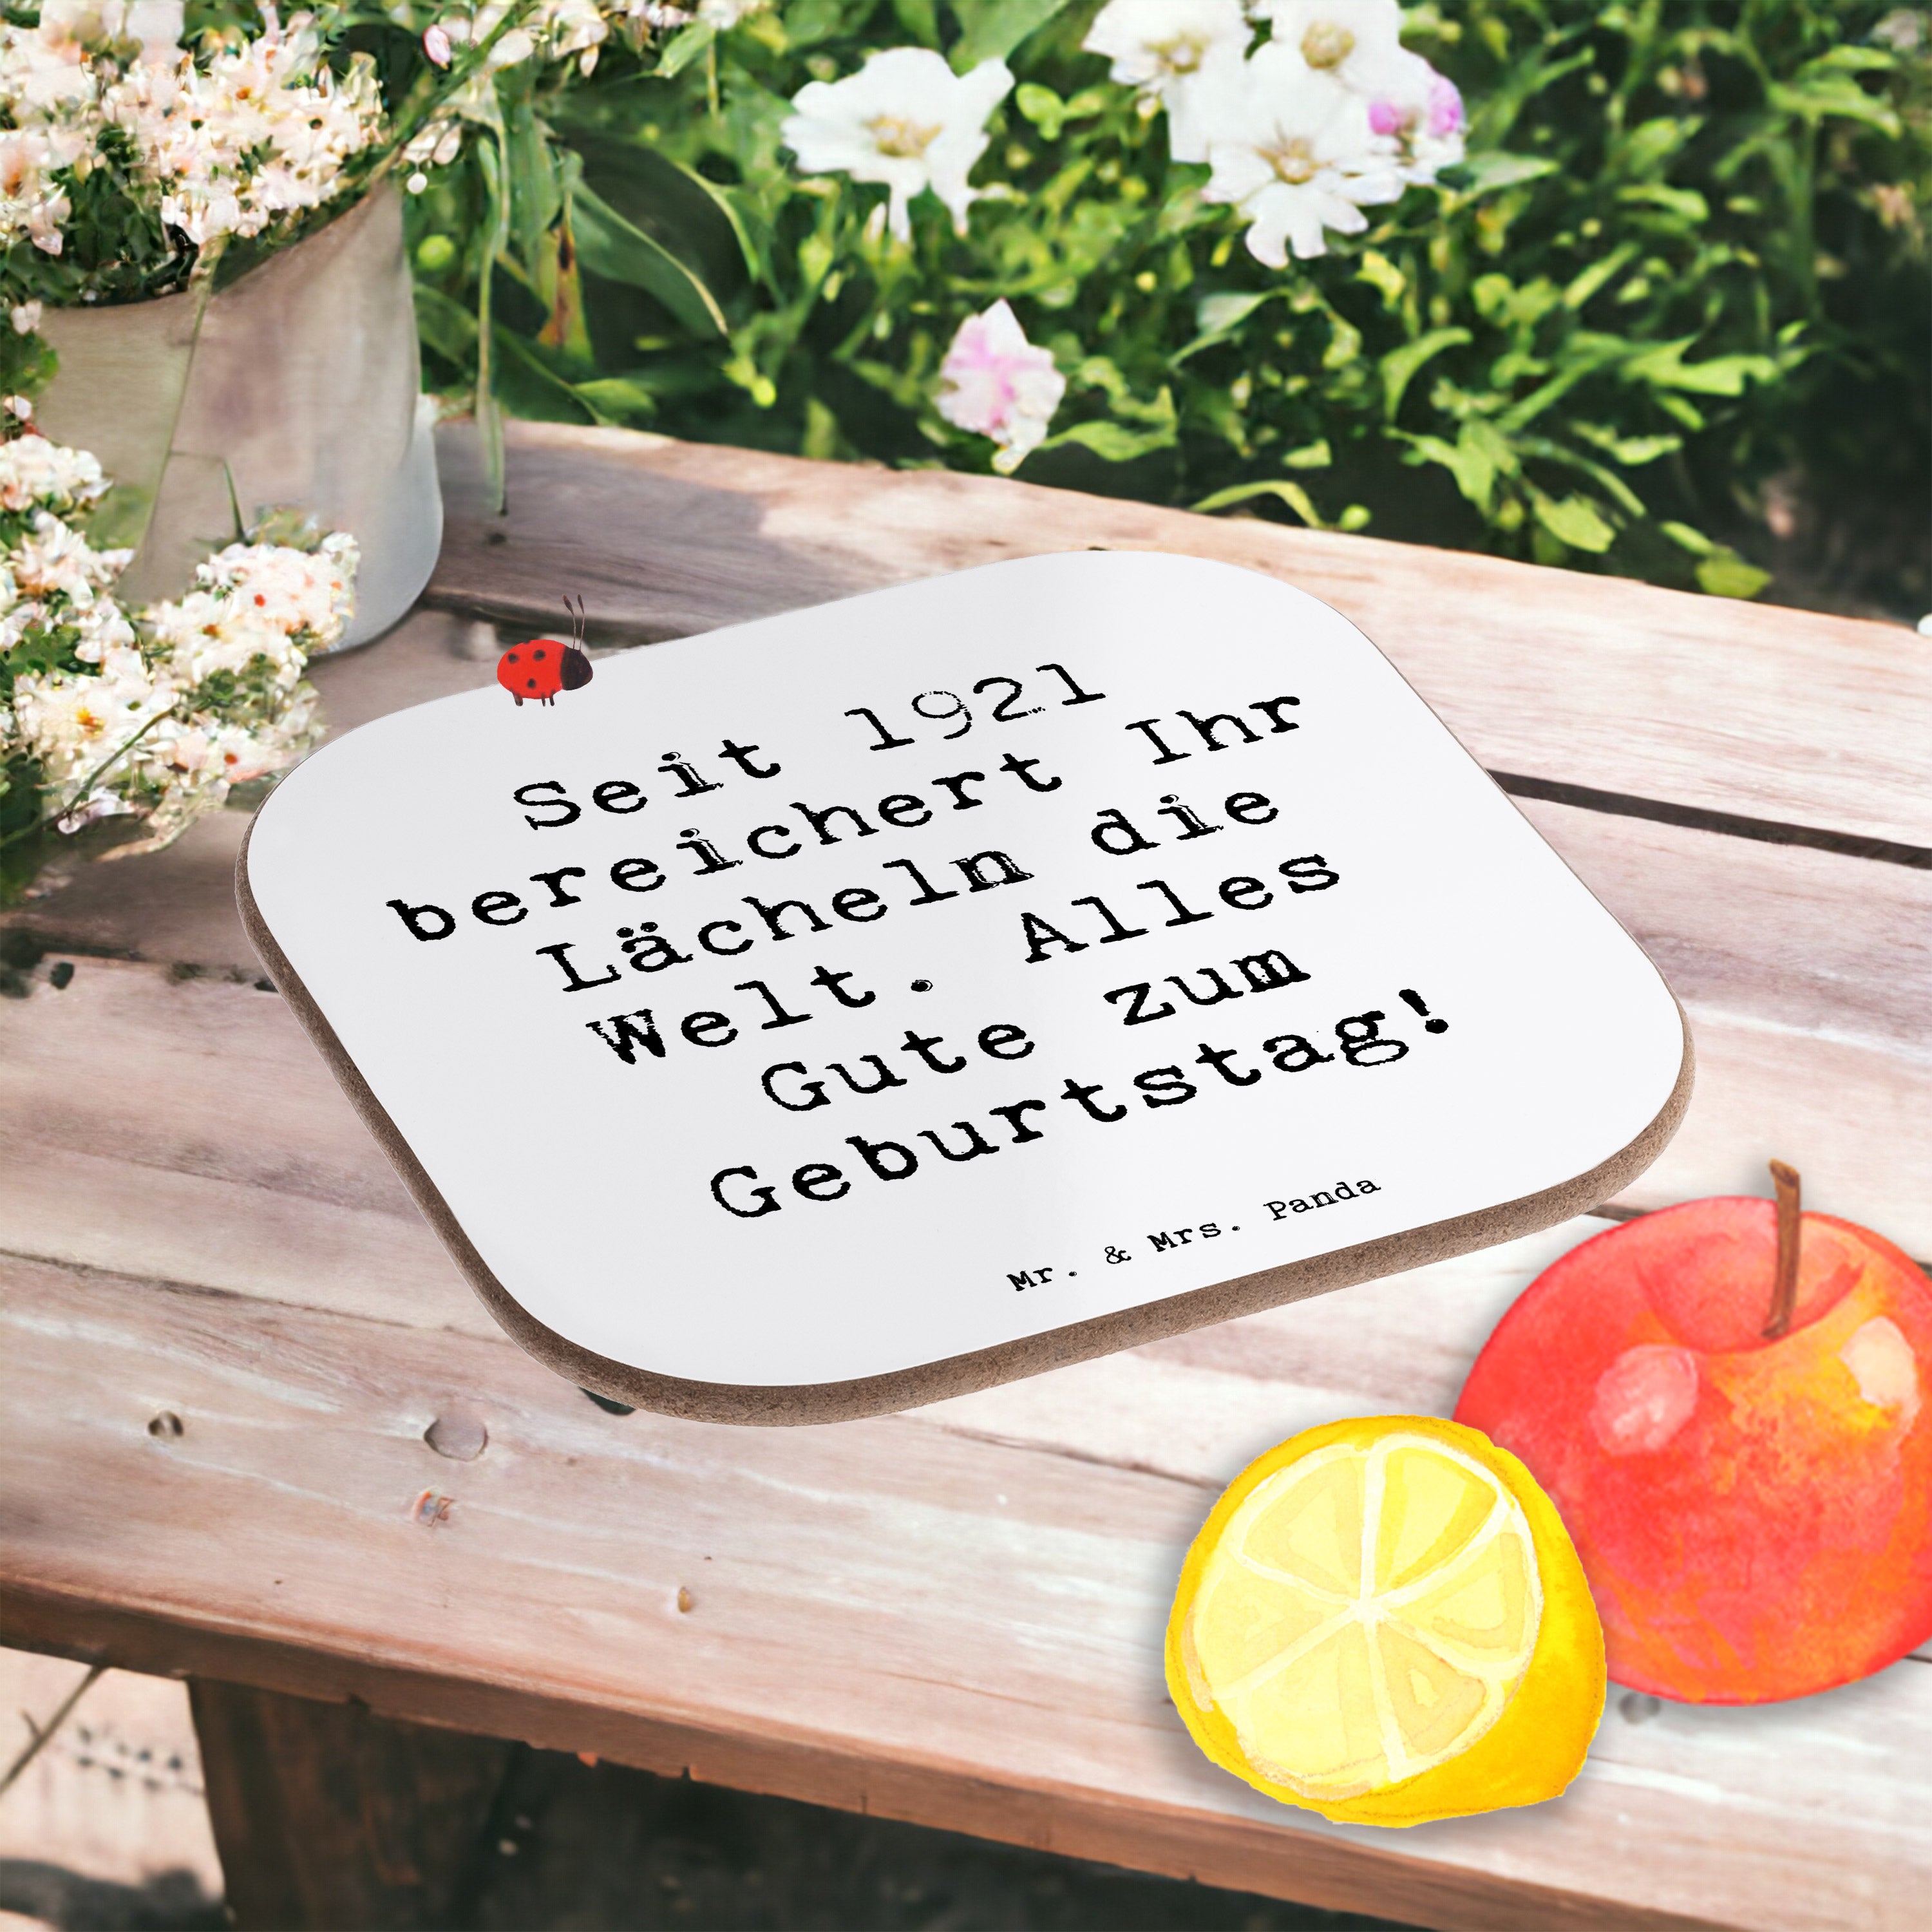 Seit 1921
bereichert Ihr
Lächeln die
Welt. Alles
Gute zum
Geburtstag!
Mr. & Mrs. Panda